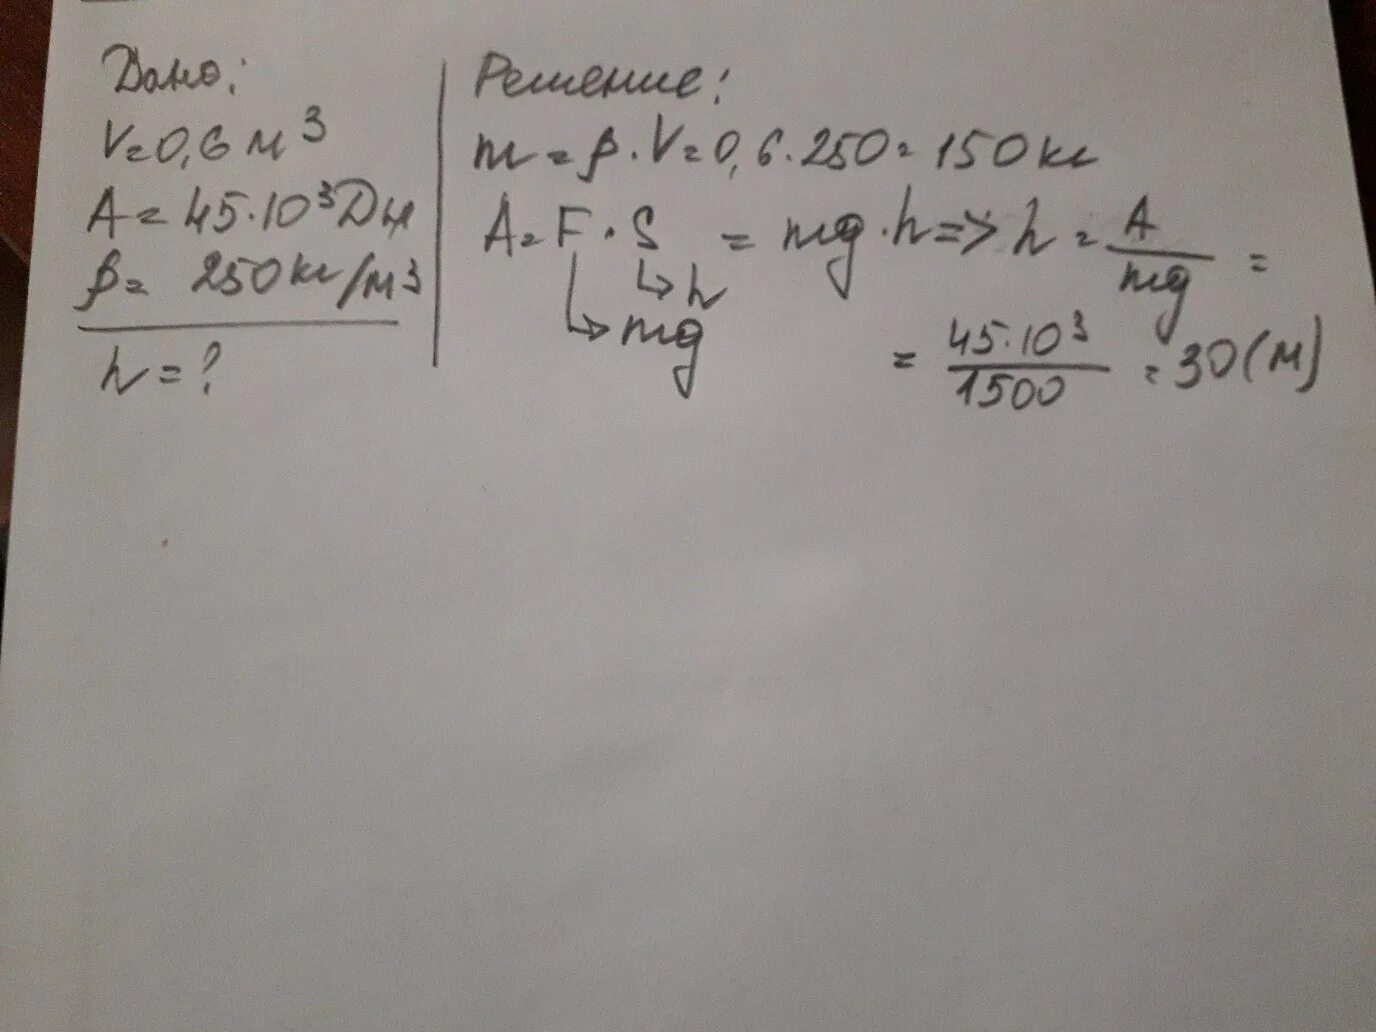 Дано:
V=0,6 м³
A=45·10³Дж
ρ= 250кг/м³
h=?
Решение:
m=ρ·V=0,6·250=150кг
A=F·S=mg·h=>h=A/mg=
↳h
↳mg
=45·10³/1500=30(м)